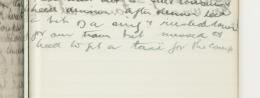 had dinner. After dinner had
a bit of a sing & rushed down
for our train but missed so
had to get a taxi for the camp